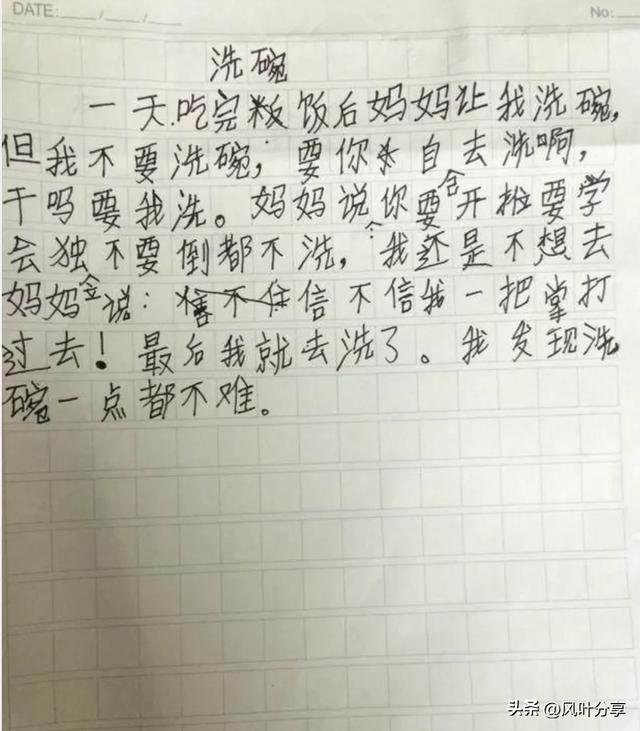 DATE: / /
No:
洗碗
一天.吃完饭后妈妈让我洗碗,
但我不要洗碗,要你自去洗啊,
干吗要我洗。妈妈说你要开始要学
会独不要倒都不洗,我还是不想去
妈妈说:信不信我一把掌打
过去!最后我就去洗了。我发现洗
碗一点都不难。
头条 @风叶分享